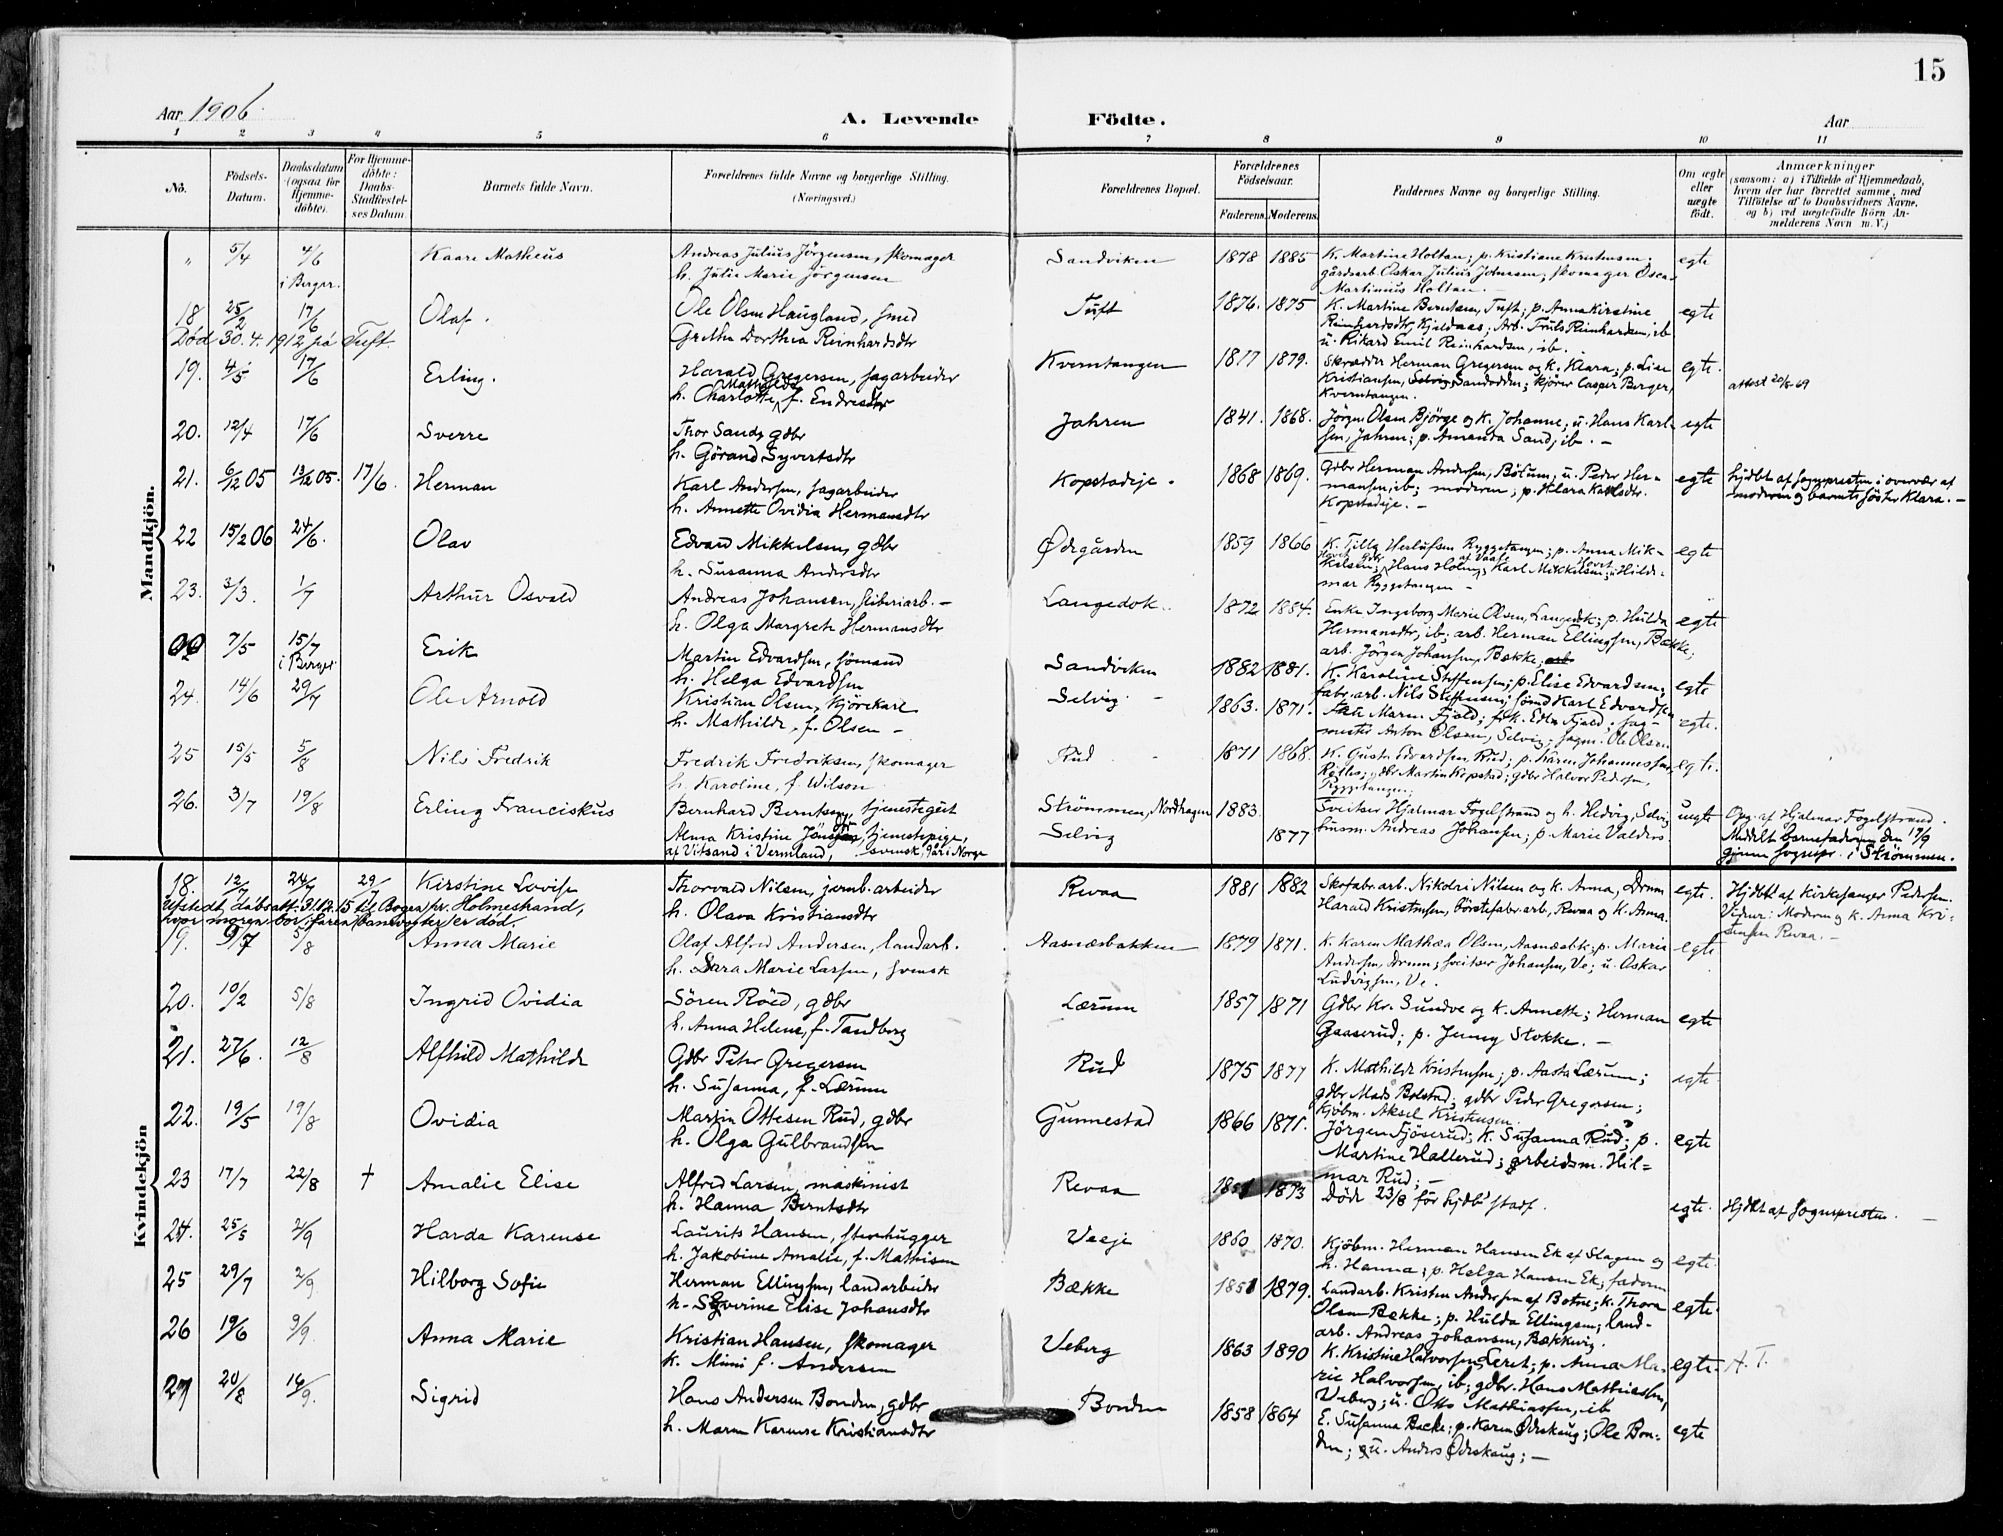 15
Aar 1906. A. Levende Födte. Aar
1 2 3 4 5 6 7 8 9 10 11
No. Födsels-Datum. Daabsdatum (ogsaa for Hjemmedöbte). For Hjemmedöbte: Daabs-Stadfæstelses Datum. Barnets fulde Navn. Forældrenes fulde Navne og borgerlige Stilling. (Næringsvei.) Forældrenes Bopæl. Forældrenes Födselsaar. Faderens. Moderens. Faddernes Navne og borgerlige Stilling. Om ægte eller uægte födt. Anmærkninger (saasom: a) i Tilfælde af Hjemmedaab, hvem der har forrettet samme, med Tilföielse af to Daabsvidners Navne, og b) ved uægtefödte Börn Anmelderens Navn m.V.)
Mandkjön.
" 5/4 4/6 Kaare Matheus Andreas Julius Jörgensen, skomager Sandviken 1878 1885 K. Martine Holtan; p. Kristiane Kristensen; egte
i Berger. h. Julie Marie Jörgensen gårdsarb. Oskar Julius Johnsen; skomager Oscar
Martinius Holtan. -
18 25/2 17/6 Olaf. Ole Olsen Haugland, smed Tuft 1876. 1875 K. Martine Berntsen, Tuft; p. Anna Kirstine egte
Död 30.4.1912 på Tuft. Grethe Dorthea Reinhardsdtr Reinhardsdtr, Kjeldaas; Arb. Truls Reinhardsen, ib
u. Rikard Emil Reinhardsen, ib.
19. 4/5 17/6 Erling. Harald Gregersen, sagarbeider Kverntangen 1877 1879. Skrædder Herman Gregersen og k. Klara; p. Lise egte. attest 20/8-69
h. Charlotte Mathilde, f. Endresdtr Kristiansen, Selvig, Sandodden; kjörer Casper Berger,
Kverntangen.
20. 12/4 17/6 Sverre Thor Sand, gdbr Jahren 1841. 1868. Jörgen Olsen Bjørge og k. Johanne; u. Hans Karl- egte
h. Görand Syvertsdtr sen, Jahren; p. Amanda Sand, ib. -
21. 6/12 05 13/12 05. 17/6. Herman Karl Andersen, sagarbeider Kopstadeje. 1868 1869. Gdbr Herman Andersen, Bölum; u. Peder Her- egte hjdbt af sognepresten i overvær af
h. Annette Ovidia Hermansdtr mansen, ib; moderen; p. Klara Karlsdtr. moderen og barnets söster Klara. -
Kopstadeje. -
22 15/2 06 24/6. Olav Edvard Mikkelsen, gdbr Ødegården 1859 1866 K. Tilla Herlufsen Ryggetangen; p. Anna Mik- egte
h. Susanna Andersdtr kelsen; Hans Holm; Karl Mikkelsen; u. Hilde-
mar Ryggetangen -
23. 3/3. 1/7 Arthur Osvald Andreas Johansen, sliberiarb. - Langedok. 1872 1884. Enke Ingeborg Marie Olsen, Langedok; p. Hulda egte
h. Olga Margreth Hermansdtr Hermansdtr, ib; arb. Herman Ellingsen, Bække;
arb. Jörgen Johansen, Bække;
7/5 15/7 Erik Martin Edvardsen, sömand Sandviken 1882 1881. K. Karoline Steffensen; p. Elise Edvardsen; egte
i Berger h. Helga Edvardsen fabr. arb. Nils Steffensen; sömd Karl Edvardsen
24. 14/6 29/7 Ole Arnold Kristian Olsen, Kjörekarl Selvig - 1863. 1871. Maren Fjeld; frk. Edle Fjeld; sag- egte.
h. Mathilde, f. Olsen - mester Anton Olsen, Selvig; sagm. Ole Olsen
25 15/5 5/8 Nils Fredrik Fredrik Fredriksen, skomager Rud 1871 1868. K. Gusta Edvardsen Rud; p. Karen Johannessen, egte.
h. Karoline, f. Wilson gdbr Martin Kopstad; gdbr Halvor Pedersen,
Ryggetangen;
26. 3/7 19/8 Erling Franciskus Bernhard Berntsen, tjenestegut Strömmen, Nordhagen 1883. Sveitser Hjalmar Fogelstrand og h. Hedvig, Selvig uegte Opg. af Hjalmar Fogelstrand.
Alma Kristine Jöns dtr, tjenestepige, Selvig 1877 husm. Andreas Johansen; p. Marie Valders Meddelt barnefaderen den 17/9
af Vitsand i Vermland, svensk, går i Norge gjenn. sognepr. i Strömmen.
Kvindekjön
18. 12/7 24/7 29/7 Kirstine Lovise Thorvald Nilsen, jernb. arbeider Revaa 1881 1882 Skofabr. arb. Nikolai Nilsen og k. Anna, Dramm egte. Hjdbt af Kirkesanger Pedersen.
Utstedt dåbsatt. 31.12.15 til Bogen pr. Holmestrand, h. Olava Kristiansdtr Harald Kristensen, börstefabr. arb., Revaa og k. Anna. Vidner: Moderen og k. Anna Kri-
hvor moren bor, faren er död. stensen Revaa. -
19. 9/7 5/8 Anna Marie Olaf Alfred Andersen, landarb. Aasnæsbakken 1879 1871. K. Karen Mathea Olsen, Aasnæsbk; p. Maria egte
h. Sara Marie Larsen, svensk Andersen, Dramm; sveitser Johansen, Ve; u. Oskar
Ludvigsen, Ve.
20. 10/2 5/8 Ingrid Ovidia Sören Röed, gdbr Lærum 1857 1871 Gdbr Kr. Sundve og k. Annette; Herman egte
h. Anna Helene, f. Tandberg Gaaserud; p. Jenny Stokke. -
21. 27/6. 12/8 Alfhild Mathilde Gdbr Peter Gregersen Rud 1875 1877 K. Mathilde Kristensen; p. Aasta Lærum; egte
h. Susanna, f. Lærum gdbr Mads Bolstad; gdbr Peder Gregersen;
Kjöbm. Aksel Kristensen
22. 19/5 19/8 Ovidia Martin Ottesen Rud, gdbr Gunnestad 1866 1871. Jörgen Fjöserud; K. Susanna Rud; p. egte
h. Olga Gulbrandsen Martine Hallerud; arbeidsm. Hil-
mar Rud; -
23 17/7 22/8 † Amalie Elise Alfred Larsen, maskinist Revaa 1851 1873 Döde 23/8 för hjdb stadf. egte. Hjdbt af Sognepresten. -
h. Hanna Berntsdtr
24. 25/5 2/9 Harda Karense Laurits Hansen, stenhugger Veeje 1860 1870. Kjöbm. Herman Hansen Ek af Slagen og egte.
h. Jakobine Amalie, f. Mathisen h. Hanna; p. Helga Hansen Ek; faderen
25 29/7 2/9 Hilborg Sofie Herman Ellingsen, landarbeider Bække 1851 1879. Landarb. Kristen Andersen af Botne; k. Thora egte.
h. Severine Elise Johansdtr Olsen Bække; p. Hulda Ellingsen; land-
arb. Andreas Johansen, Bækkevig.
26 19/6 9/9. Anna Marie Kristian Hansen, skomager Veberg 1863 1890 K. Kristine Halvorsen, Leret; p. Anna Ma- egte. A.T.
k. Mimi f. Andersen rie Halvorsen, ib; gdbr. Hans Mathiesen,
Veberg; u. Otto Mathiassen, ib
27 20/8 16/9. Sigrid Hans Andersen Bonden, gdbr Bonden 1858 1864 E. Susanna Bække; p. Karen Ødeskaug; Ole Bon- egte
h. Maren Karense Kristiansdtr den; u. Anders Ødeskaug; -